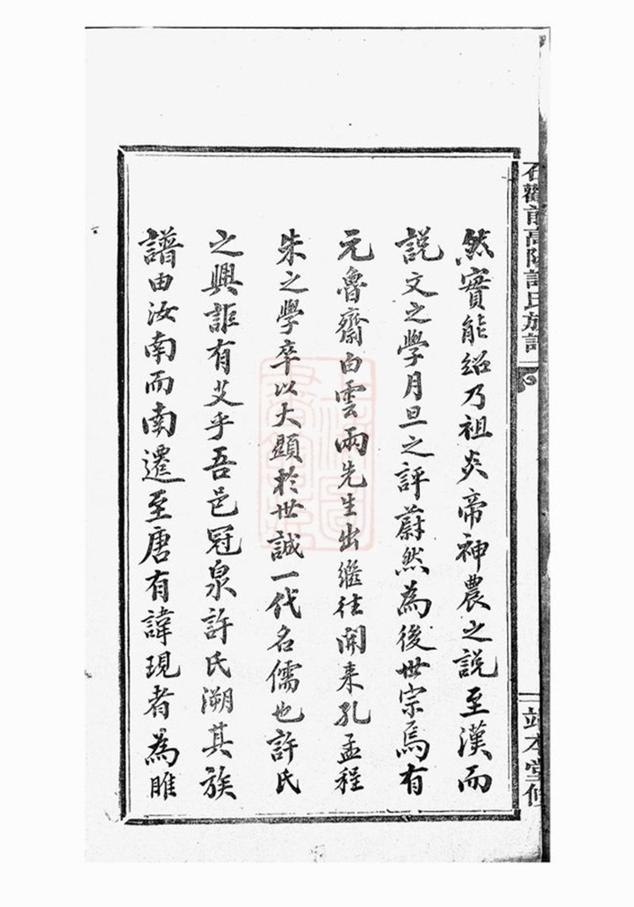 然實能紹乃祖炎帝神農之説至漢而
説文之學月旦之評蔚然為後世宗焉有
元魯齋白雲兩先生出繼往開来孔孟程
朱之學卒以大顯於世誠一代名儒也許氏
之興詎有艾乎吾邑冠泉許氏溯其族
譜由汝南而南遷至唐有諱現者為睢
高陽許氏族譜
本堂修